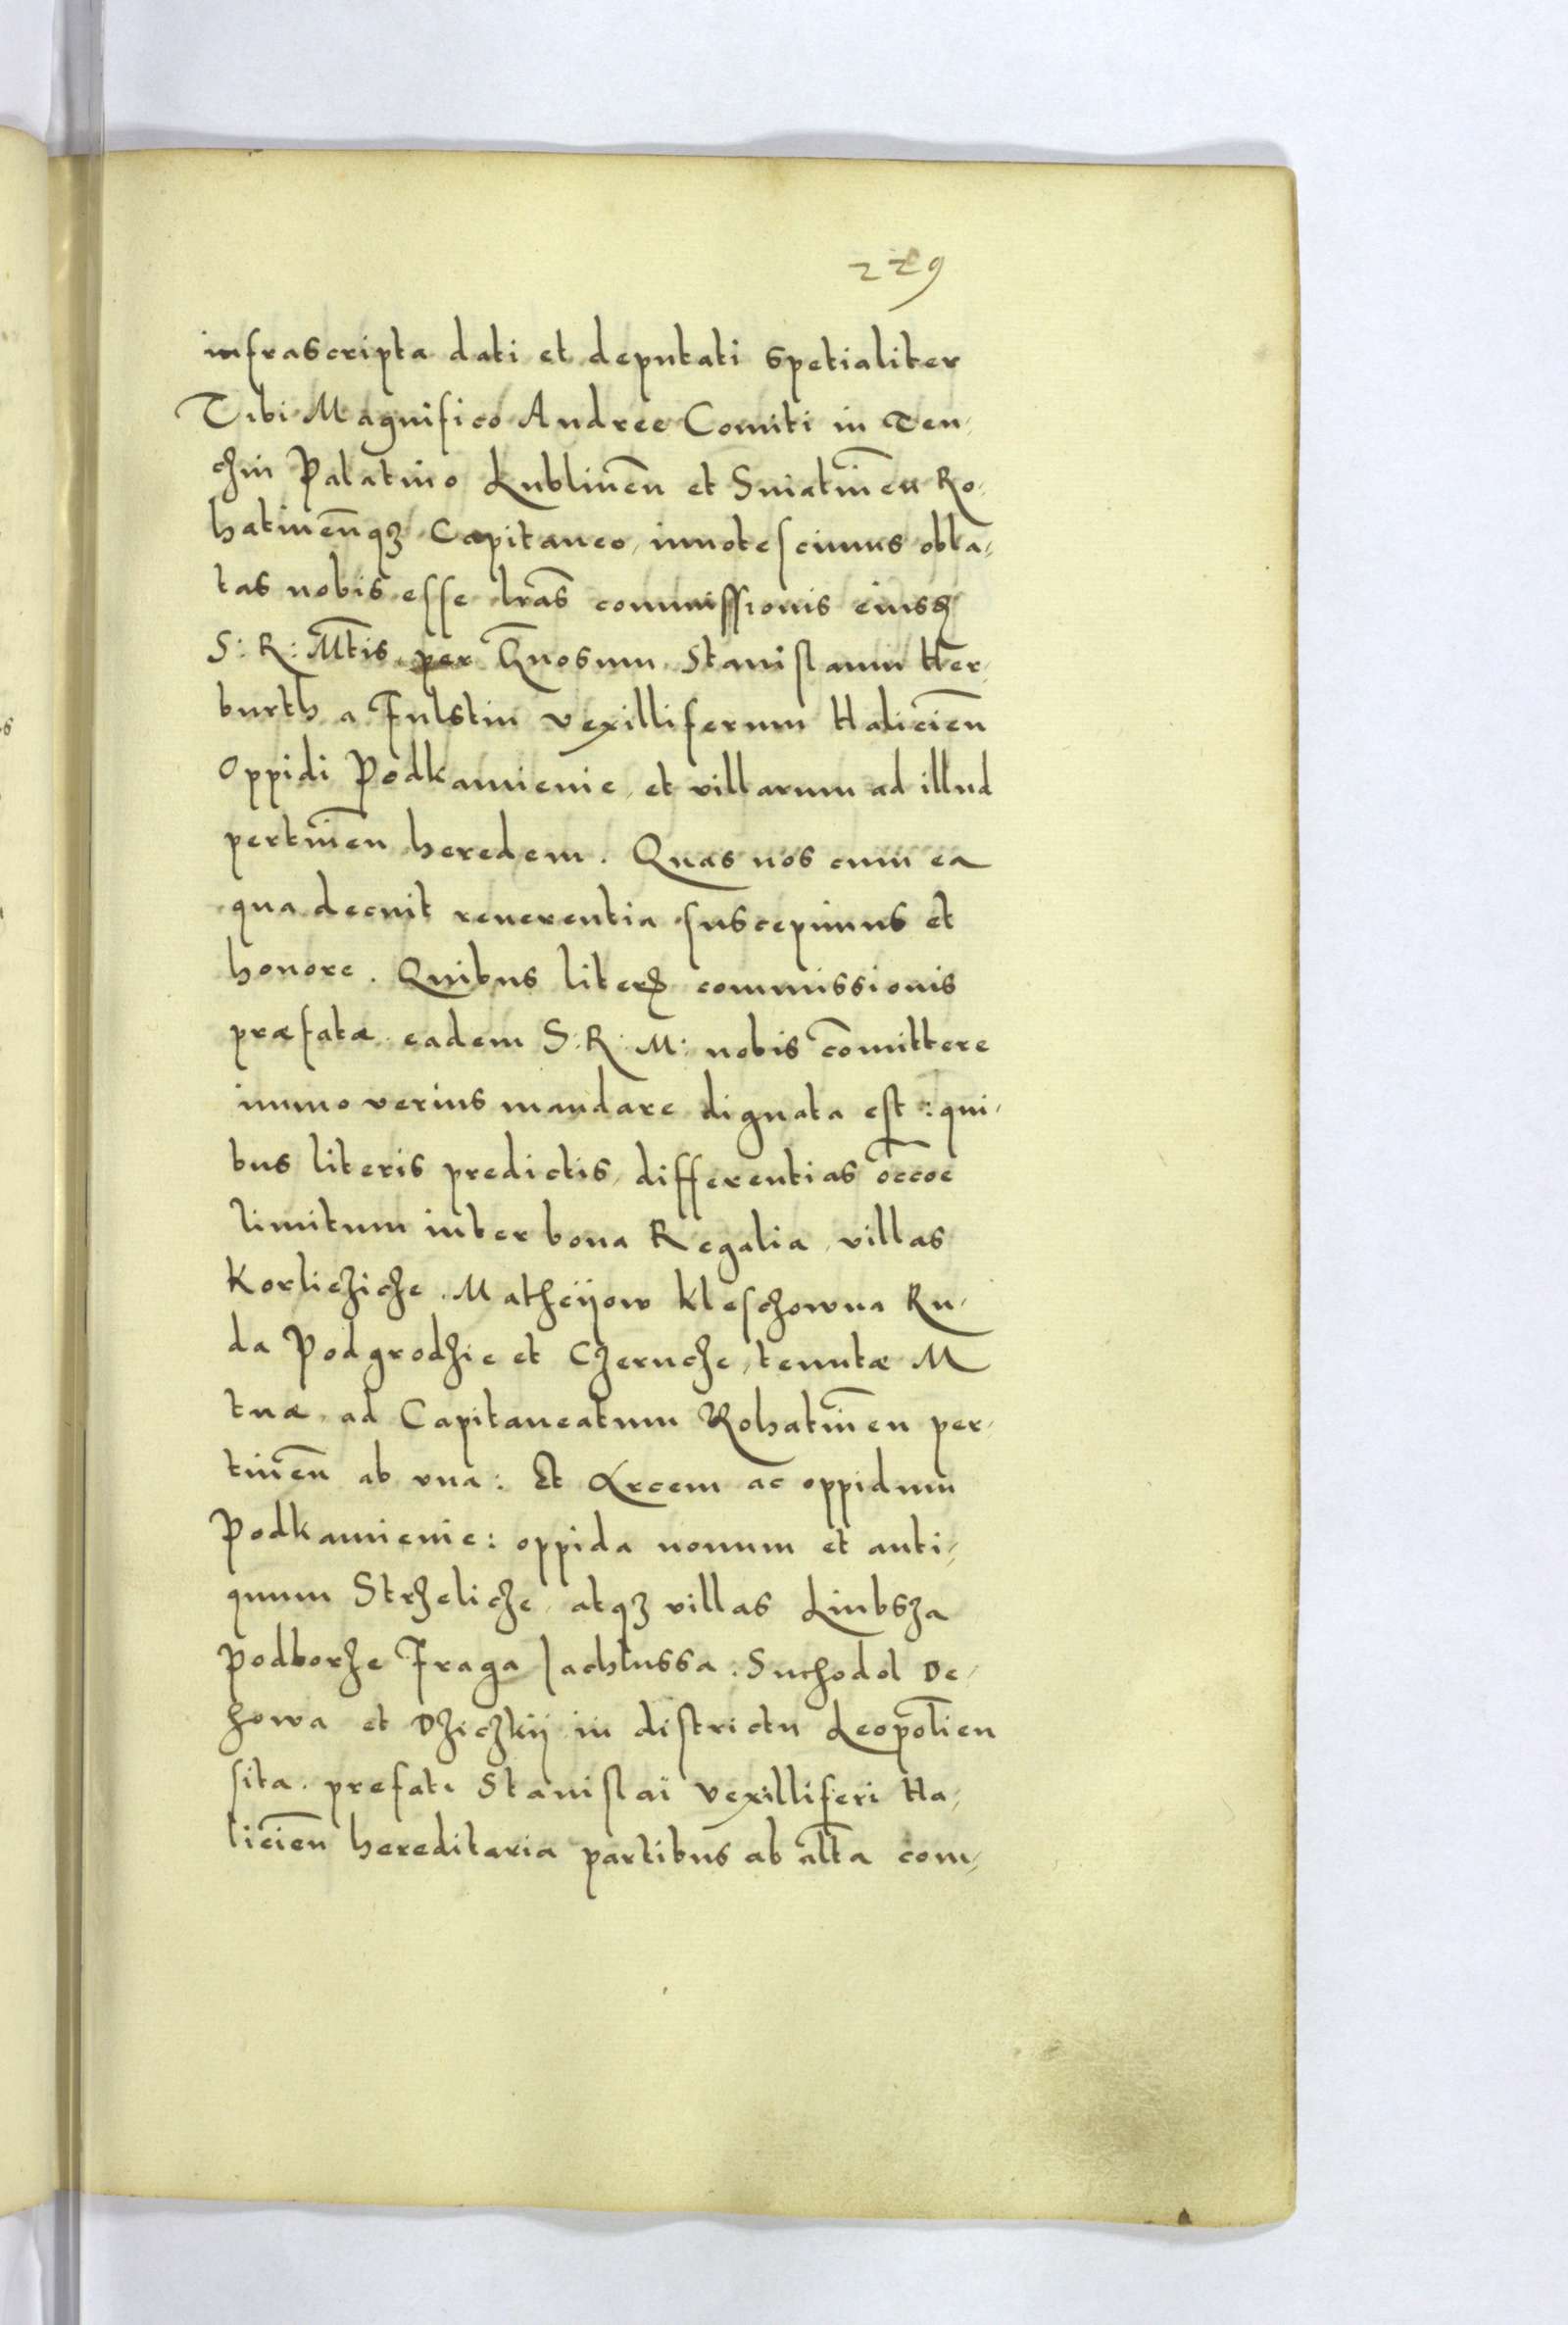 229
infrascripta dati et deputati spetialiter
Tibi Magnifico Andree Comiti in Ten-
chin Palatino Lublineñ et Sniatineñ Ro-
hatineñqз Capitaneo, innotescimus obla-
tas nobis esse lr̃as commissionis eiusd
S: R: Mt̃is per Gñosum Stanislaum Her-
burth a Fulstin vexilliferum Halicieñ
Oppidi Podkamienie, et villarum ad illud
pertineñ heredem. Quas nos cum ea
qua decuit reuerentia suscepimus et
honore. Quibus liter commissionis
præfatæ eadem S: R: M: nobis com̃ittere
immo verius mandare dignata est: qui-
bus literis predictis, differentias occõe
limitum inter bona Regalia, villas
Korlicziche Matheijow Kleschowna Ru-
da Podgrodzie et Czernche, tenutæ M
tuæ ad Capitaneatum Rohatineñ per-
tineñ ab vna: Et Arcem ac oppidum
Podkamienie: oppida nouum et anti-
quum Strzeliche, atqз villas Liubsza
Podborze Fraga Jachlussa. Suchodol De-
howa et Dziczkij in districtu Leopolieñ
sita. prefati Stanislai Vexilliferi Ha-
licieñ hereditaria partibus ab alt̃a com-